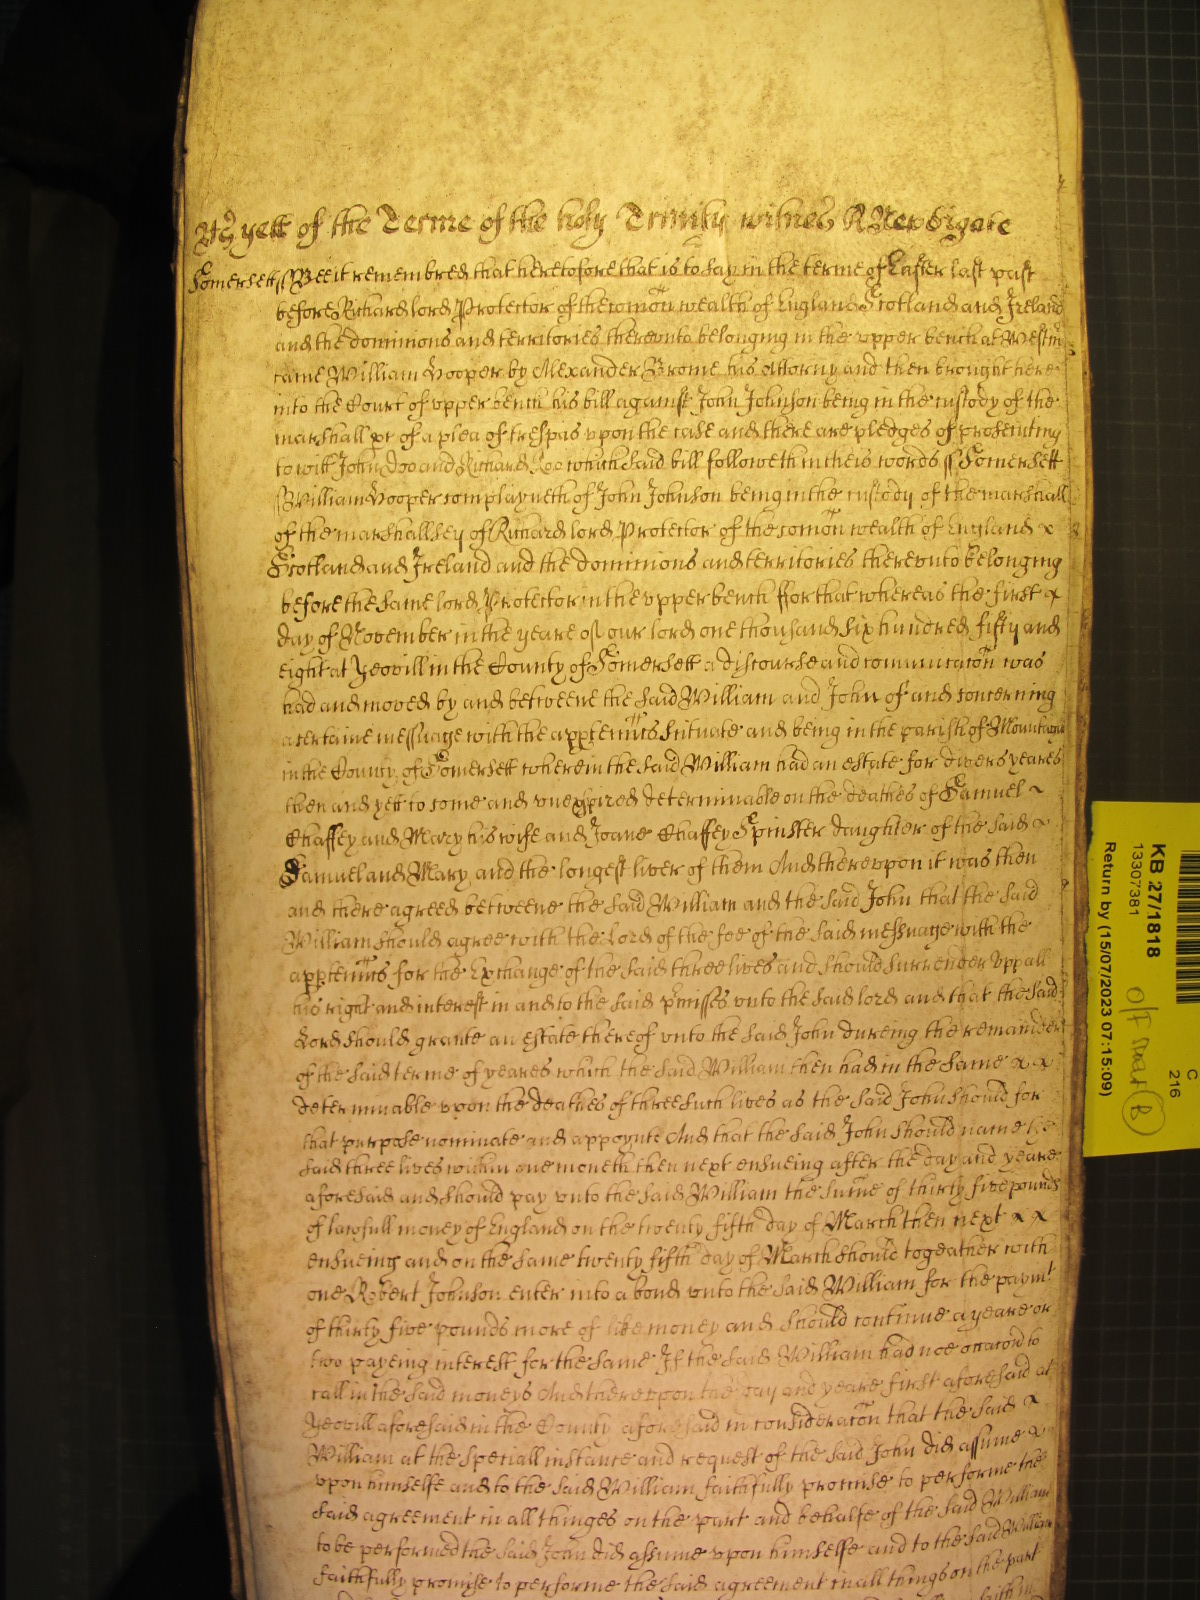 As yett of the Terme of the holy Trinity witnes R Newdigate
Somersett ss Bee it remembred that heretofore that is to say in the terme of Easter last past
before Richard lord Protector of the comon wealth of England Scotland and Ireland
and the dominions and territories therevnto belonging in the vpper bench at Westm
came William Hooper by Alexander Brome his Attorny and then brought here
into the Court of vpper bench his bill against John Johnson being in the custody of the
marshall &c of a plea of trespas vpon the case and there are pledges of prosecuting
to witt John Doo and Richard Roo which said bill followeth in theis words ss Somersett
ss William Hooper complayneth of John Johnson being in the custody of the marshall
of the marshallsey of Richard lord Protector of the comon wealth of England x
Scotland and Ireland and the dominions and territories therevnto belonging
before the same lord Protector in the vpper bench ffor that whereas the first x
day of November in the yeare of our lord one thousand six hundred fifty and
eight at Yeovill in the County of Somersett a discourse and comunicacon was
had and moved by and betweene the said William and John of and concerning
a certaine messuage with the apptenncs scituate and being in the parish of Mountague
in the County of Somersett wherein the said William had an estate for divers yeares
then and yett to come and vnexpired determinable on the deathes of Samuel ~
Chaffey and Mary his wife and Joane Chaffey Spinster daughter of the said x
Samuel and Mary and the longest liver of them And therevpon it was then
and there agreed betweene the said William and the said John that the said
William should agree with the Lord of the fee of the said messuage with the
apptenncs for the Exchange of the said three lives and should surrender vpp all
his right and interest in and to the said pmisses vnto the said lord and that the said
Lord should grante an estate thereof vnto the said John dureing the remainder
of the said terme of yeares which the said William then had in the same x x
determinable vpon the deathes of three such lives as the said John should for
that purpose nominate and appoynte And that the said John should name the
said three lives within one moneth then next ensueing after the day and yeare
aforesaid and should pay vnto the said William the sume of thirty five pounds
of lawfull money of England on the twenty fifth day of March then next x x
ensueing and on the same twenty fifth day of March should togeather with
one Robert Johnson enter into a bond vnto the said William for the paymt
of thirty five pounds more of like money and should continue a yeare or
two payeing interest for the same If the said William had noe occacon to
call in the said moneys And therevpon the day and yeare first aforesaid at
Yeovill aforesaid in the County aforesaid in consideracon that the said x
William at the speciall instance and request of the said John did assume x
vpon himselfe and to the said William faithfully promise to performe the
said agreement in all thinges on the part and behalfe of the said William
to be performed the said John did assume vpon himselfe and to the said William
faithfully promise to performe the said agreement in all things on the part
KB 27/1818
13307381
Return by (15/07/2023 07:15:09)
C
216
O/F
B